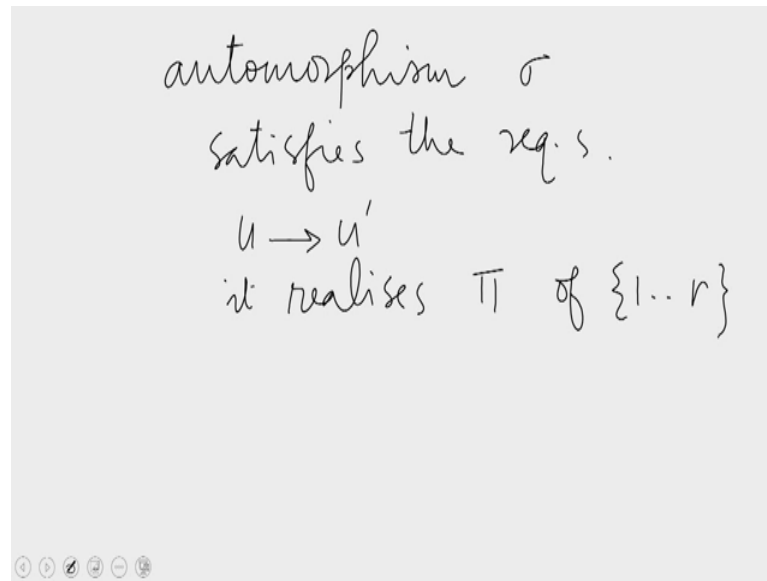 automorphism σ
satisfies the req.s.
u → u'
it realises Π of {1..r}